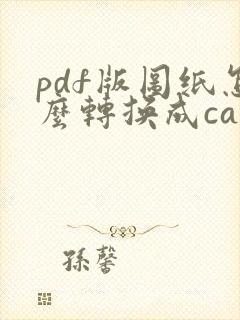 pdf版图纸怎
麼轉換成ca
孫馨